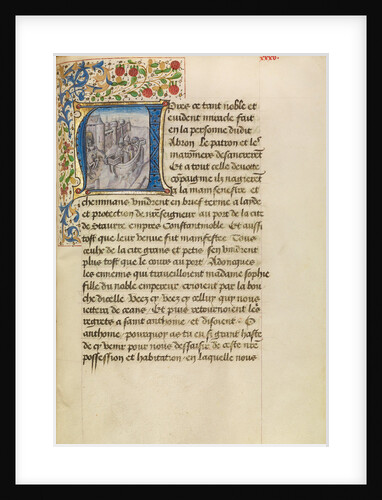 xxxv.
Apres ce tant noble et
euident miracle fait
en la personne dudit
Abron. Le patron et les
maronniers desancrerent
Et a tout celle deuote
compaignie ilz nagierent
la a la main senestre et
cheminans vindrent en brief terme a laide
et protection de nostre seigneur au port de la cite
de Stauire empres Constantnoble. Et aussi
tost que leur venue fut manifestee Tous
ceulx de la cite grans et petis sen vindrent
plus tost que le cours au port. Adonques
les ennemis qui trauailloient madame sophie
fille du noble empereur crioient par la bou
che dicelle Veez cy Veez cy celluy qui nous
iettera de ceans. Et puis retournoient les
regrets a saint anthoine et disoient. O
anthoine pourquoy as tu eu si grant haste
de cy venir pour nous dessaisir de ceste nre
possession et habitation en laquelle nous